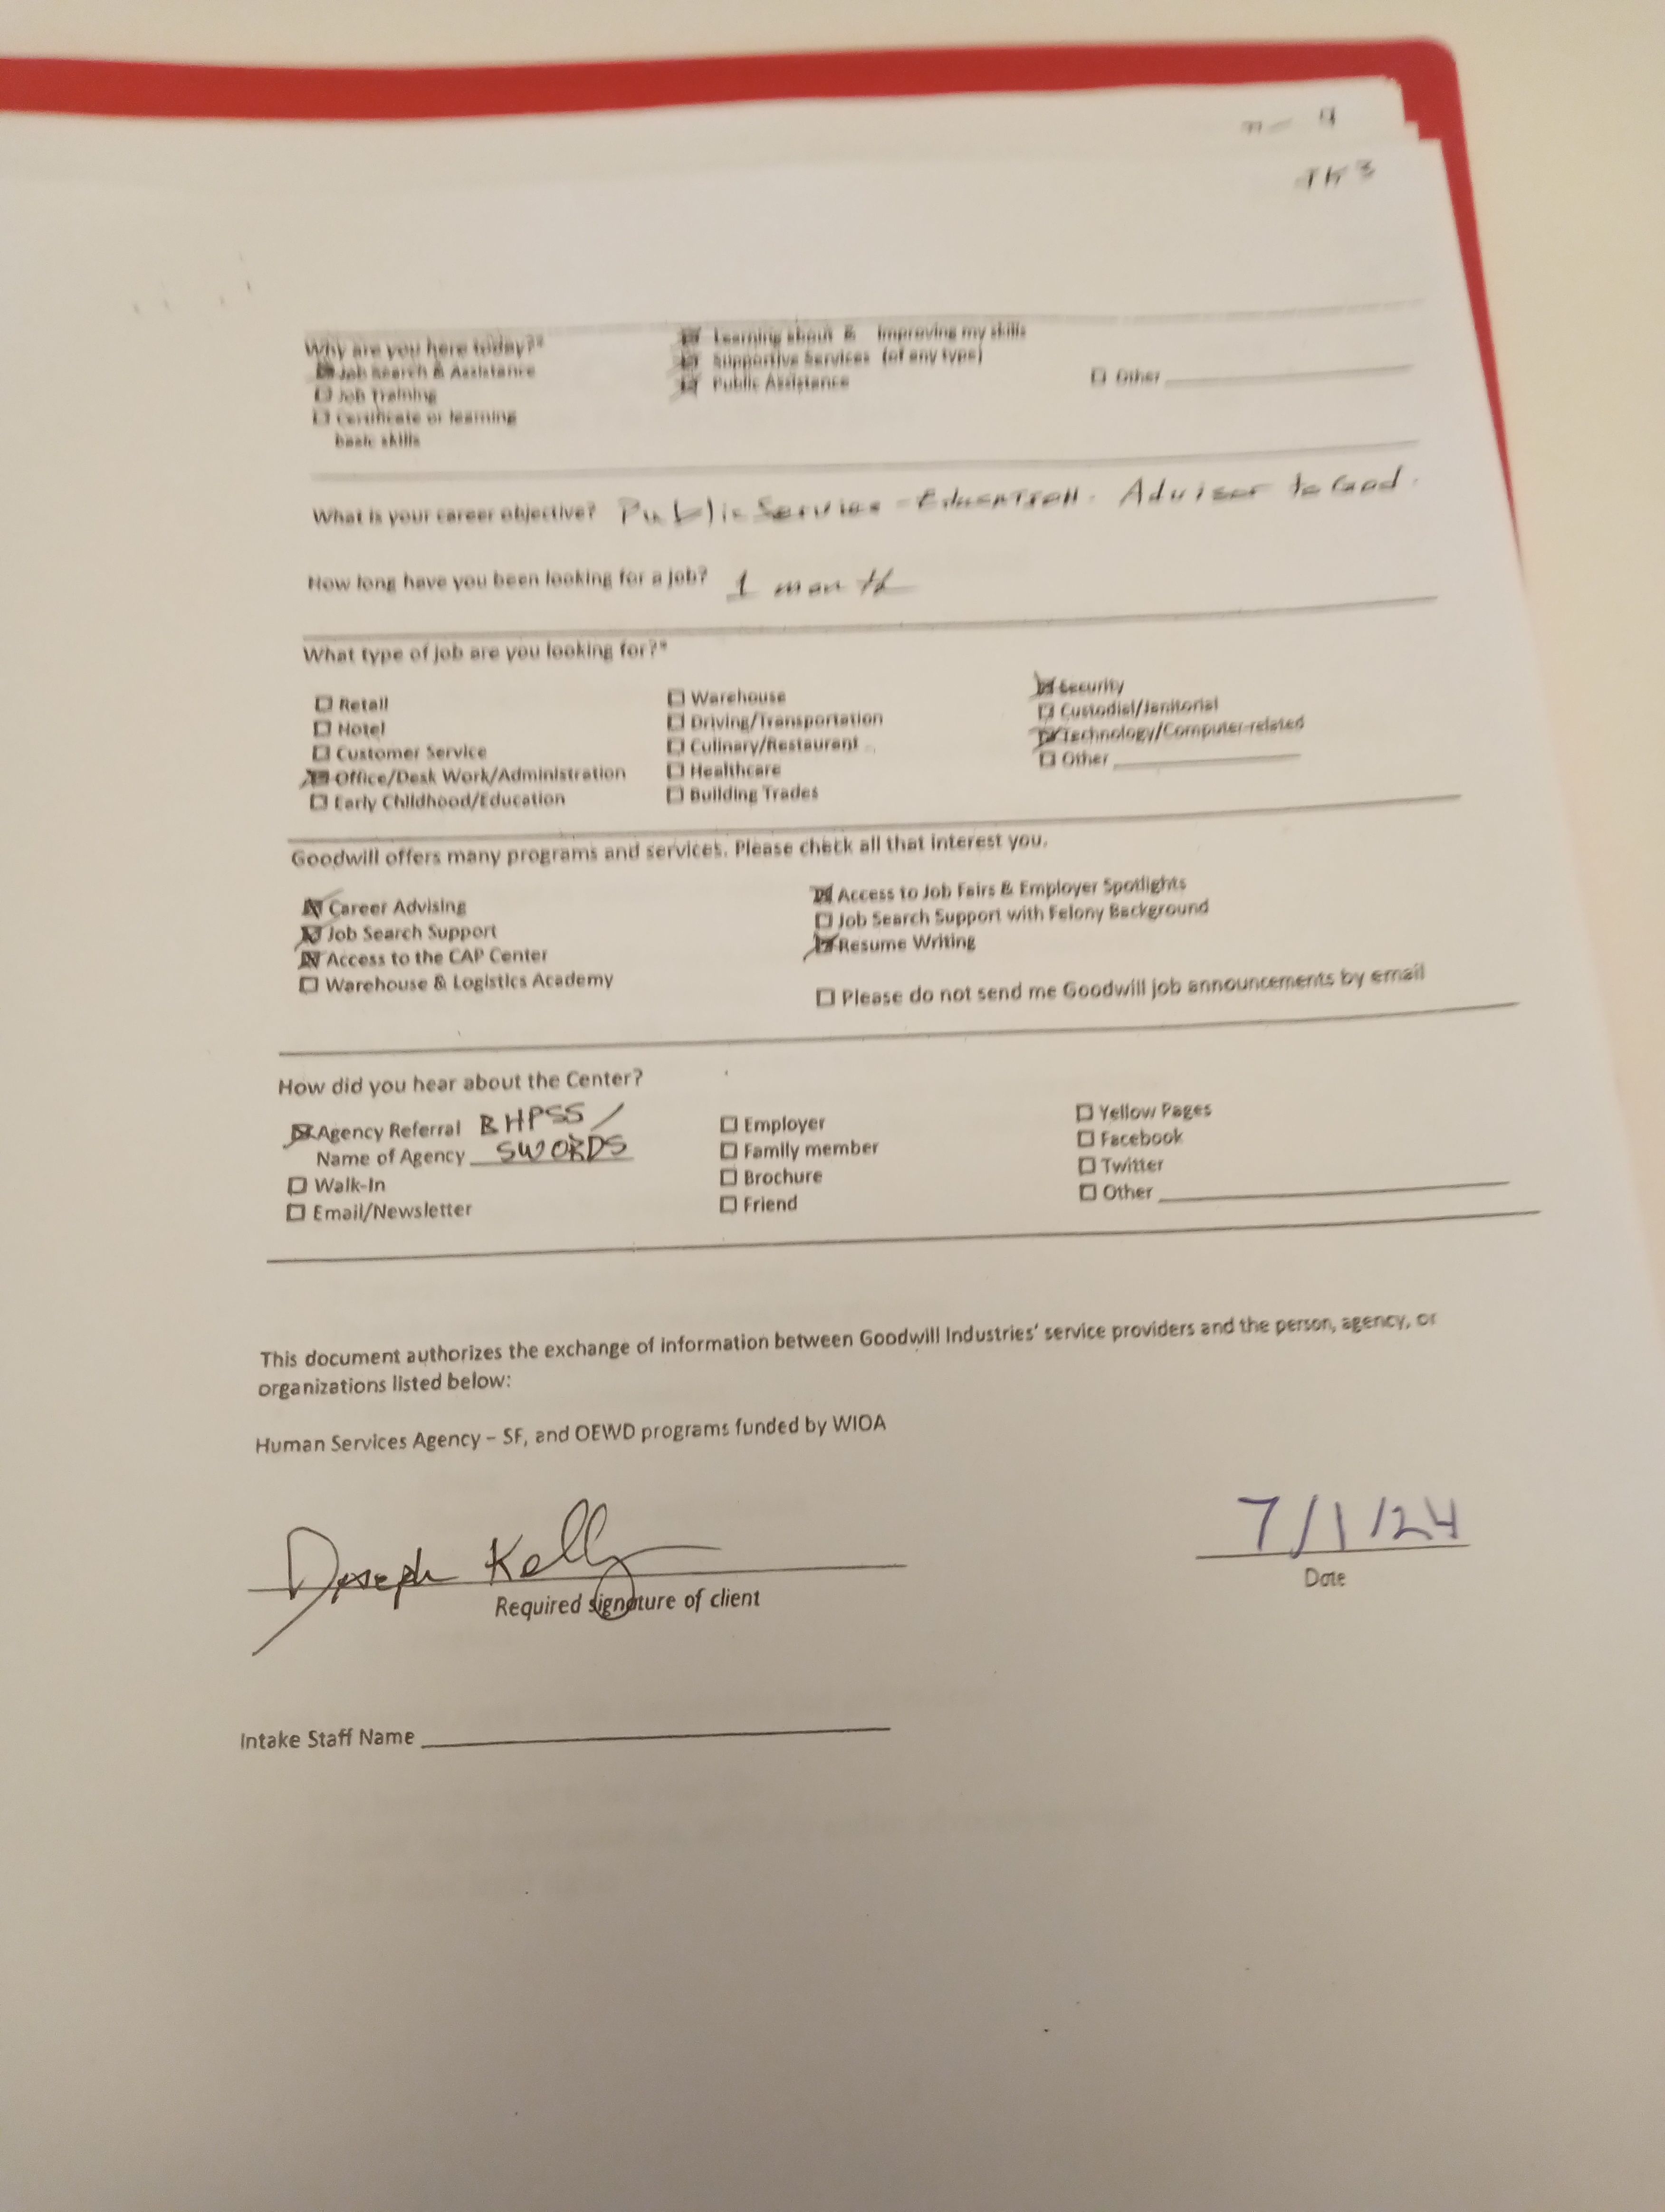 Why are you here today?*
☒ Job Search & Assistance
☐ Job Training
☐ Certificate or learning
basic skills
☒ Learning about & improving my skills
☒ Supportive Services (of any type)
☒ Public Assistance
☐ Other
What is your career objective? Public Services - Education. Advisor to God.
How long have you been looking for a job? 1 month
What type of job are you looking for?*
☐ Retail
☐ Hotel
☐ Customer Service
☒ Office/Desk Work/Administration
☐ Early Childhood/Education
☐ Warehouse
☐ Driving/Transportation
☐ Culinary/Restaurant
☐ Healthcare
☐ Building Trades
☒ Security
☐ Custodial/Janitorial
☒ Technology/Computer-related
☐ Other
Goodwill offers many programs and services. Please check all that interest you.
☒ Career Advising
☒ Job Search Support
☒ Access to the CAP Center
☐ Warehouse & Logistics Academy
☒ Access to Job Fairs & Employer Spotlights
☐ Job Search Support with Felony Background
☒ Resume Writing
☐ Please do not send me Goodwill job announcements by email
How did you hear about the Center?
☒ Agency Referral BHPSS /
Name of Agency SWORDS
☐ Walk-In
☐ Email/Newsletter
☐ Employer
☐ Family member
☐ Brochure
☐ Friend
☐ Yellow Pages
☐ Facebook
☐ Twitter
☐ Other
This document authorizes the exchange of information between Goodwill Industries' service providers and the person, agency, or
organizations listed below:
Human Services Agency – SF, and OEWD programs funded by WIOA
Joseph Kelly
Required signature of client
7/1/24
Date
Intake Staff Name